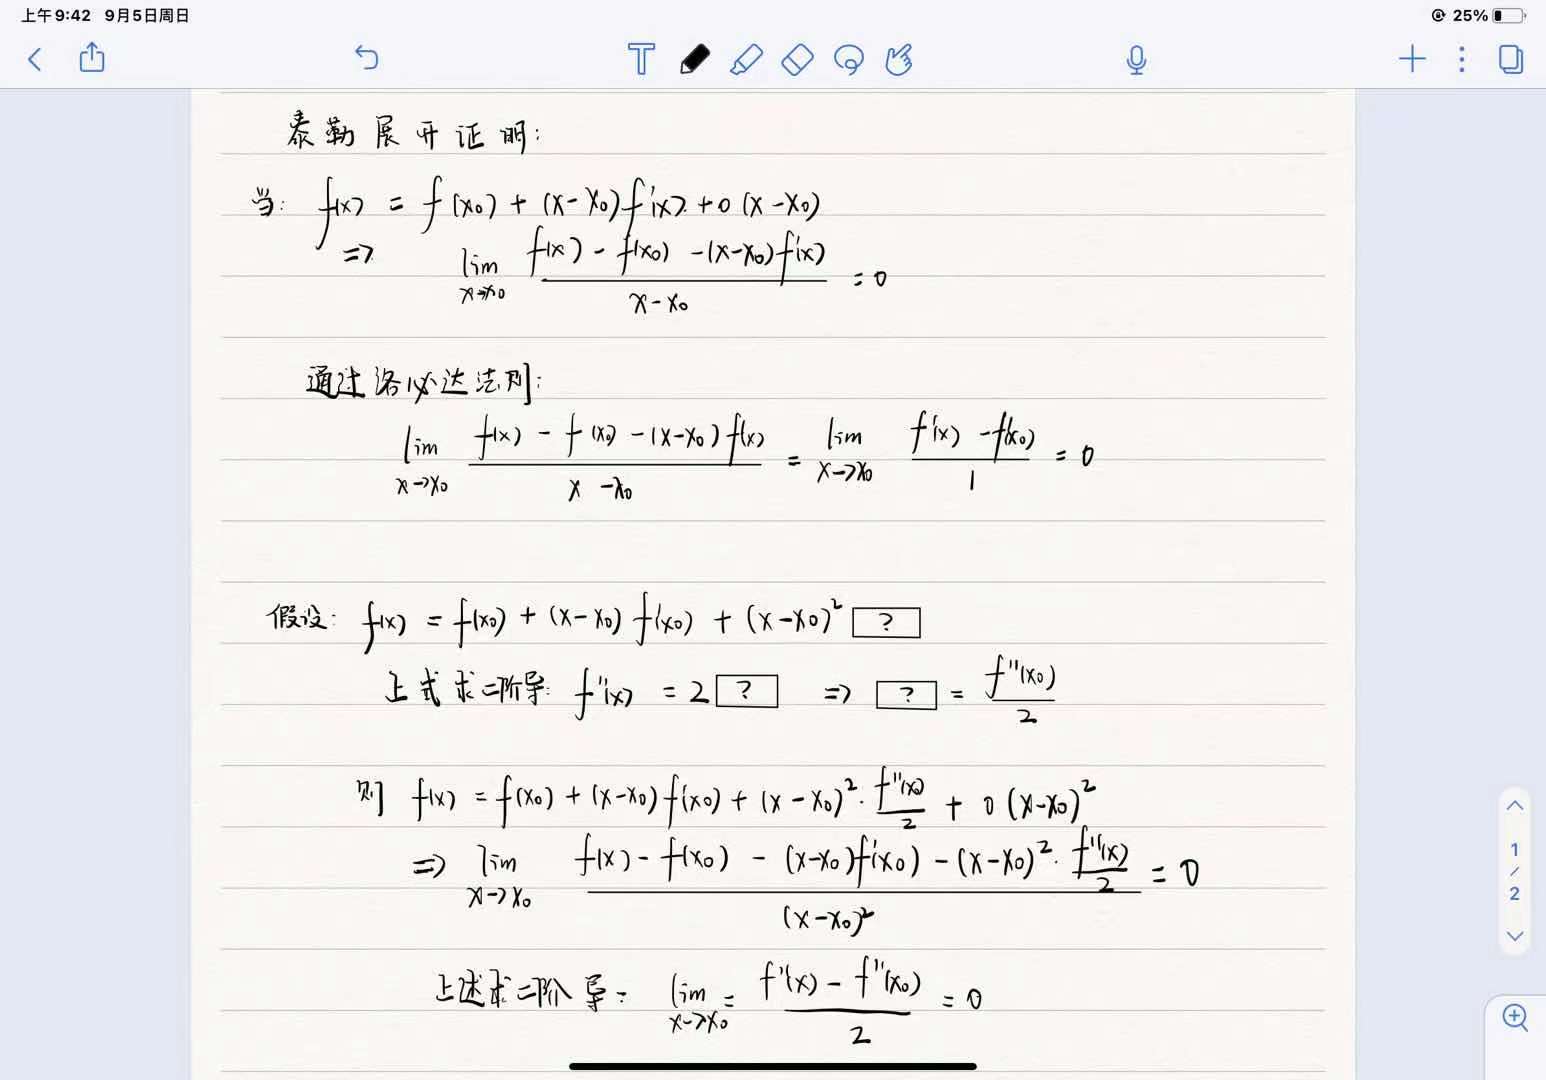 上午9:42 9月5日周日
25%
泰勒展开证明:
当: f(x) = f(x₀) + (x-x₀)f'(x) + o(x-x₀)
=> lim x→x₀ (f(x) - f(x₀) - (x-x₀)f'(x)) / (x-x₀) = 0
通过洛必达法则:
lim x→x₀ (f(x) - f(x₀) - (x-x₀)f(x)) / (x-x₀) = lim x→x₀ (f'(x) - f'(x₀)) / 1 = 0
假设: f(x) = f(x₀) + (x-x₀)f'(x₀) + (x-x₀)² [?]
上式求二阶导: f''(x) = 2[?] => [?] = f''(x₀) / 2
则 f(x) = f(x₀) + (x-x₀)f'(x₀) + (x-x₀)²·f''(x₀)/2 + o(x-x₀)²
=> lim x→x₀ (f(x) - f(x₀) - (x-x₀)f'(x₀) - (x-x₀)²·f''(x)/2) / (x-x₀)² = 0
上述求二阶导: lim x→x₀ = (f''(x) - f''(x₀)) / 2 = 0
1
/
2